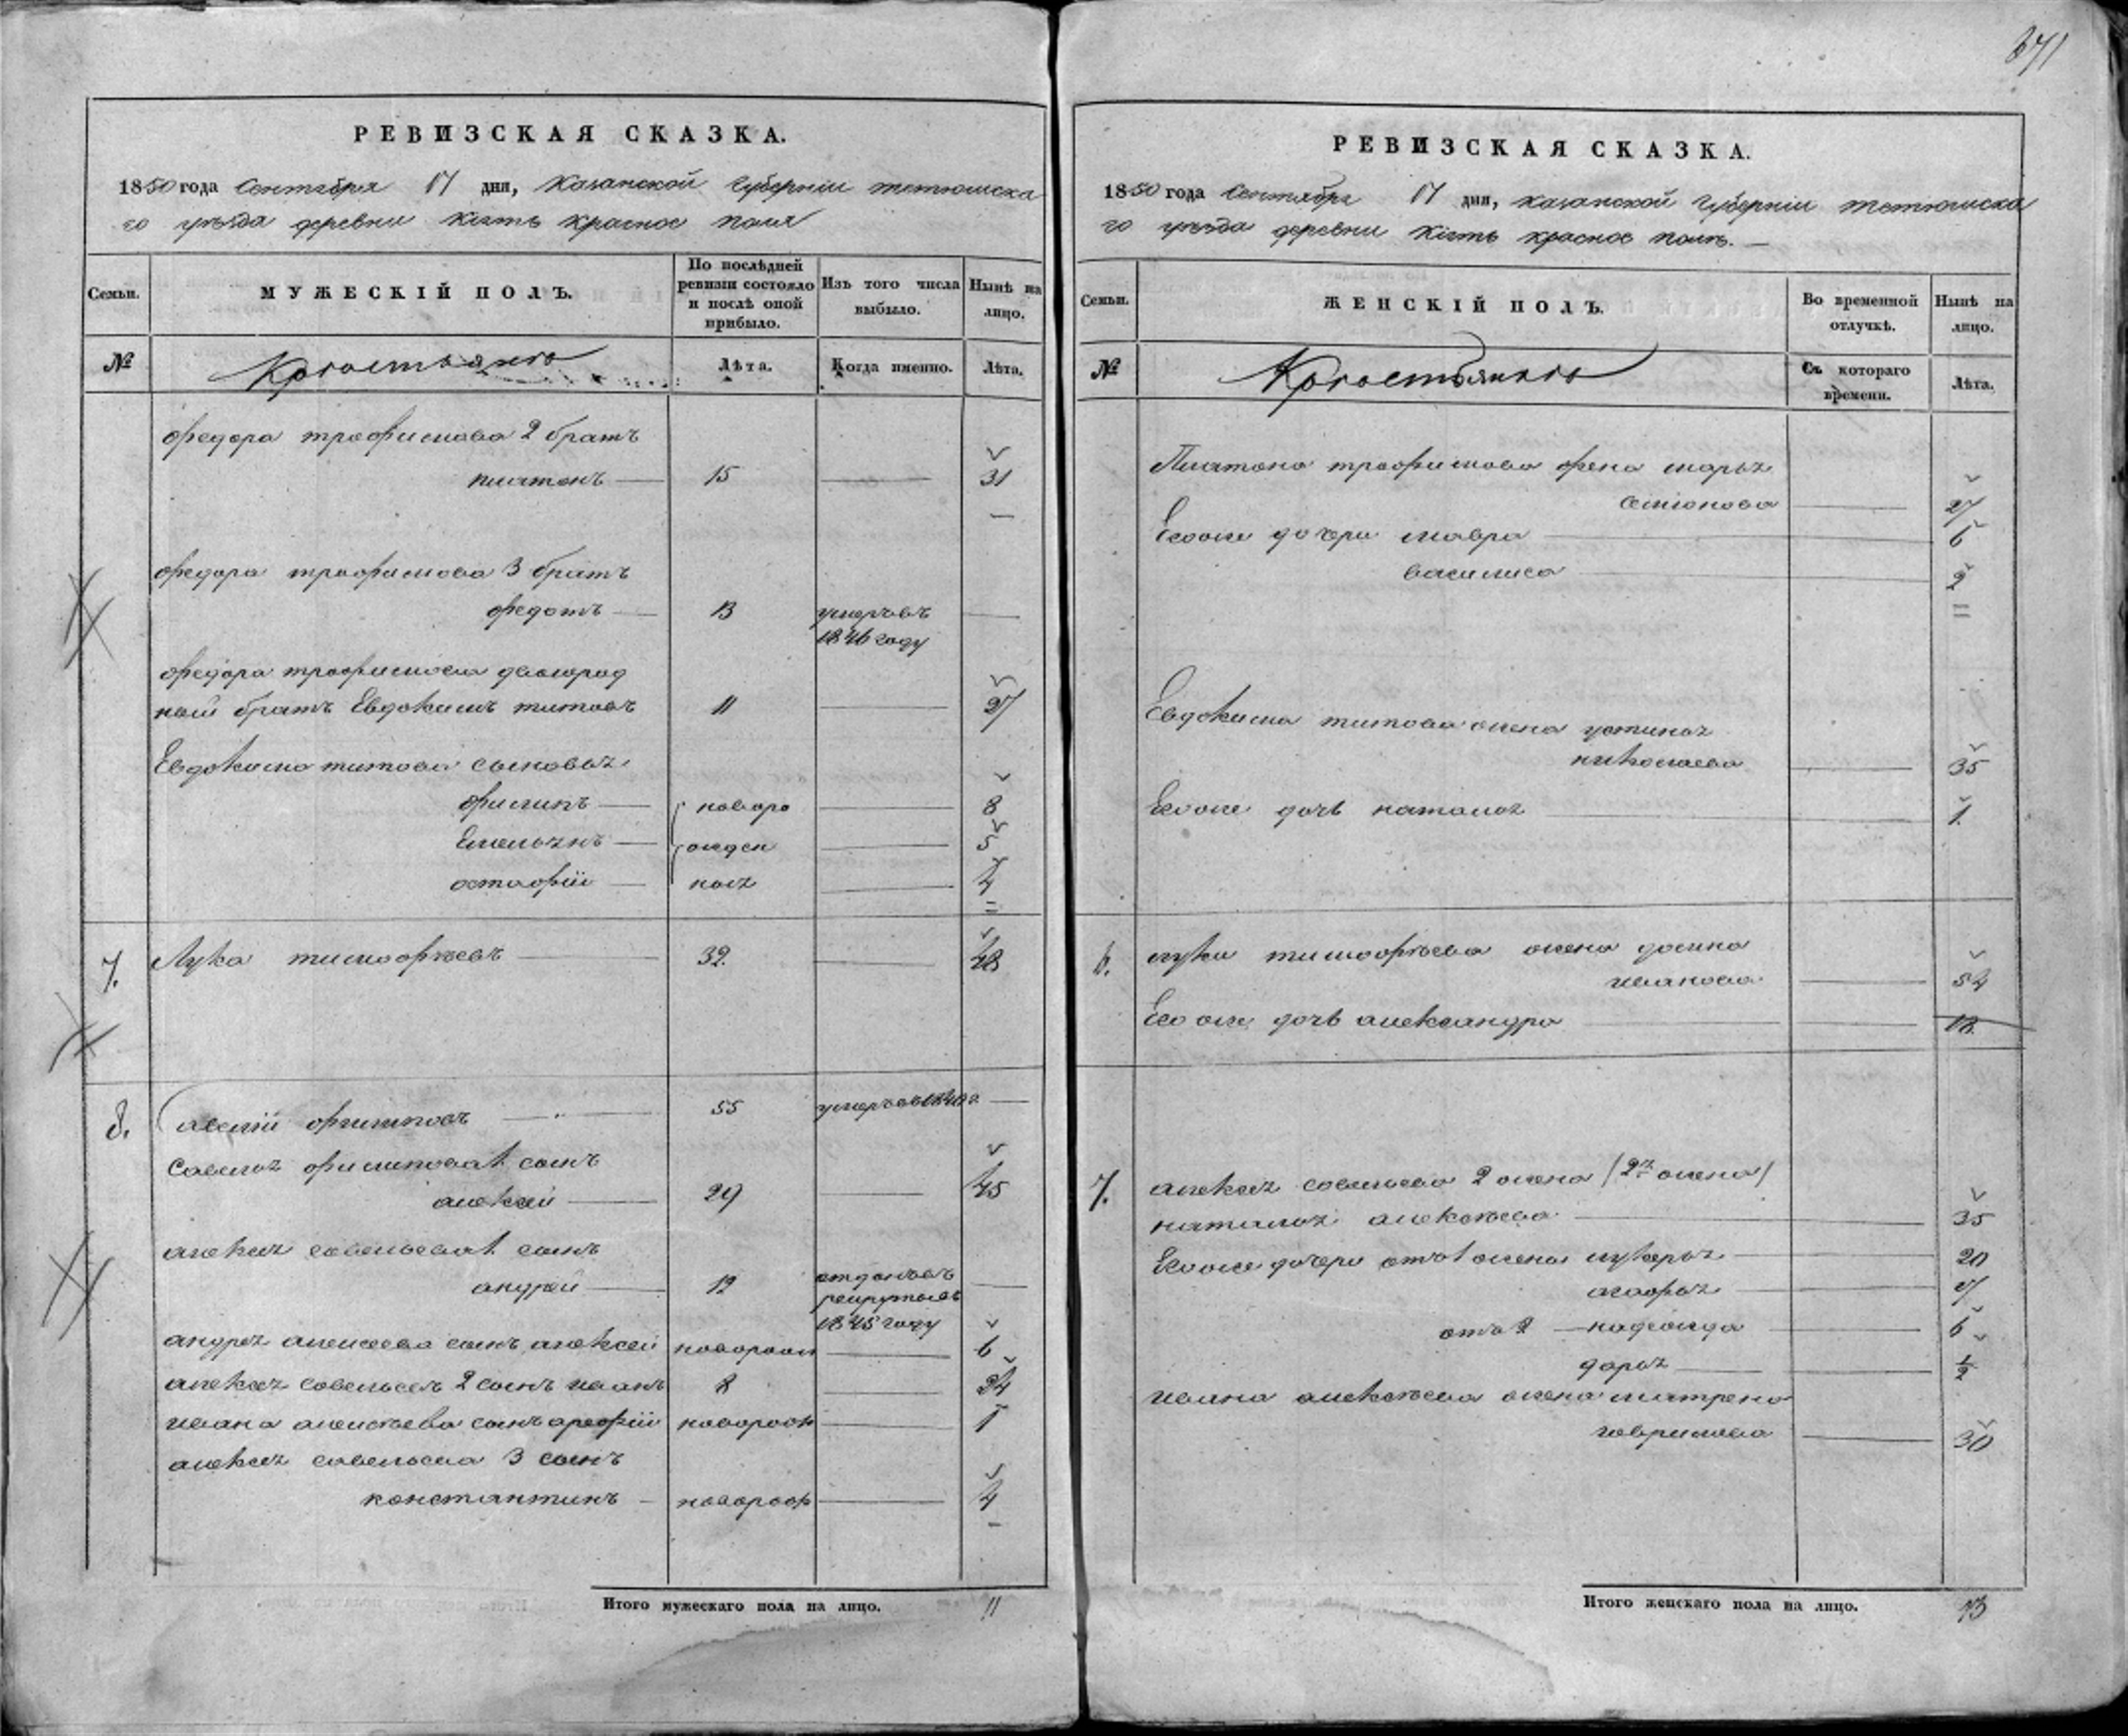 371
РЕВИЗСКАЯ СКАЗКА.
1850 года Сентября 17 дня, Казанской Губерніи тетюшска
го уѣзда деревни Кіять красное поля
Семьи.
МУЖЕСКІЙ ПОЛЪ.
По послѣдней ревизіи состояло и послѣ оной прибыло.
Изъ того числа выбыло.
Нынѣ на лицо.
№
Крестьяне
Лѣта.
Когда именно.
Лѣта.
федора трофимова 2 братъ
платонъ 15 31
федора трофимова 3 братъ
федотъ 13 умеръ въ
1846 году
федора трофимова двоюрод
ный братъ Евдокимъ титовъ 11 27
Евдокима титова сыновья
филипъ новоро 8
Емельянъ жден 5
остафій ныя 4
7. Лука тимофѣевъ 32. 48
8. савелій филиповъ 55 умеръ в 1840 г
Савелья филипова 1 сынъ
алексей 29 45
алексея савельева 1 сынъ
андрей 12 отданъ въ
рекруты въ
1845 году
андрея алексеева сынъ алексей новорож 6
алексея савельева 2 сынъ иванъ 8 24
ивана алексѣева сынъ арефій новорож 1
алексея савельева 3 сынъ
константинъ новорож 4
Итого мужескаго пола на лицо. 11
РЕВИЗСКАЯ СКАЗКА.
1850 года Сентября 17 дня, казанской Губерніи тетюшска
го уѣзда деревни Кіять красное поля.
Семьи.
ЖЕНСКІЙ ПОЛЪ.
Во временной отлучкѣ.
Нынѣ на лицо.
№
Крестьяне
Съ котораго времени.
Лѣта.
Платона трофимова жена марья
семионова 27
Его же дочери мавра 6
василиса 2
Евдокима титова жена устинья
николаева 35
Его же дочь наталья 1
6. луки тимофѣева жена домна
иванова 54
Его же дочь александра 18
7. алексея савельева 2 жена (2я жена)
наталья алексѣева 35
Его же дочери отъ 1 жены лукерья 20
агафья 7
отъ 2 надежда 6
дарья 1/2
ивана алексѣева жена матрена
гаврилова 30
Итого женскаго пола на лицо. 13